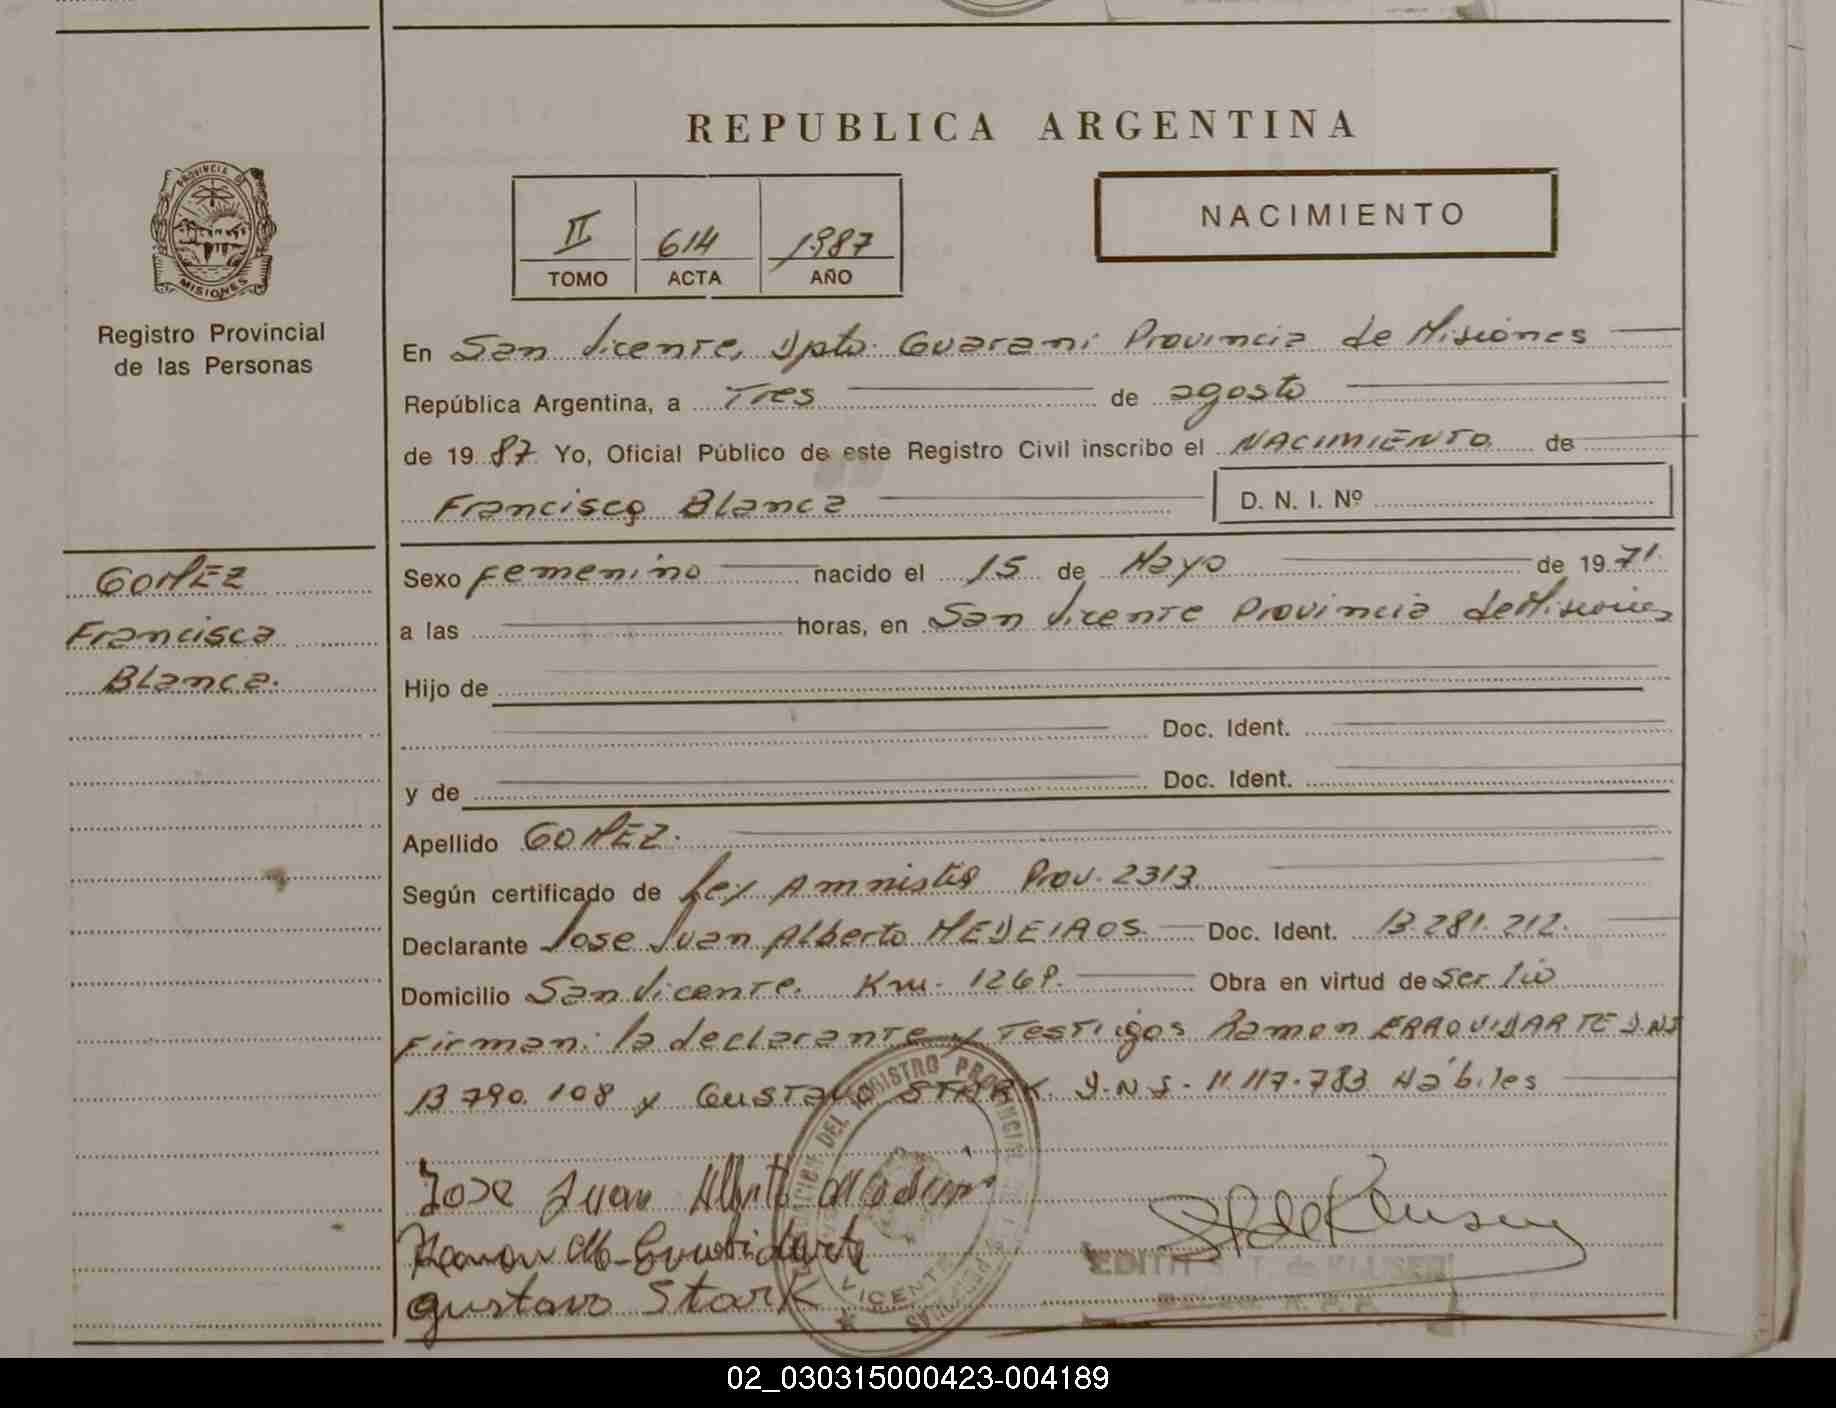 REPUBLICA ARGENTINA
PROVINCIA DE
MISIONES
Registro Provincial
de las Personas
II 614 1987
TOMO ACTA AÑO
NACIMIENTO
En San Vicente, Dpto. Guarani Provincia de Misiones
República Argentina, a Tres de agosto
de 19 87 Yo, Oficial Público de este Registro Civil inscribo el NACIMIENTO de
Francisca Blanca D. N. I. Nº
GOMEZ
Francisca
Blanca.
Sexo femenino nacido el 15 de Mayo de 19 71.
a las horas, en San Vicente Provincia de Misiones
Hijo de
Doc. Ident.
y de Doc. Ident.
Apellido GOMEZ.
Según certificado de Ley Amnistia Prov. 2313.
Declarante Jose Juan Alberto MEDEIROS. Doc. Ident. 13.281.212.
Domicilio San Vicente. Km. 1269. Obra en virtud de ser tio
Firman: la declarante y Testigos Ramon D.N.I
13.790.108 y GUSTAVO STARK. D.N.I. 11.117.783 Hábiles
Jose Juan Alberto
Ramon
gustavo Stark
DEL REGISTRO PROVINCIAL
VICENTE
EDITH de KLUSEN
02_030315000423-004189